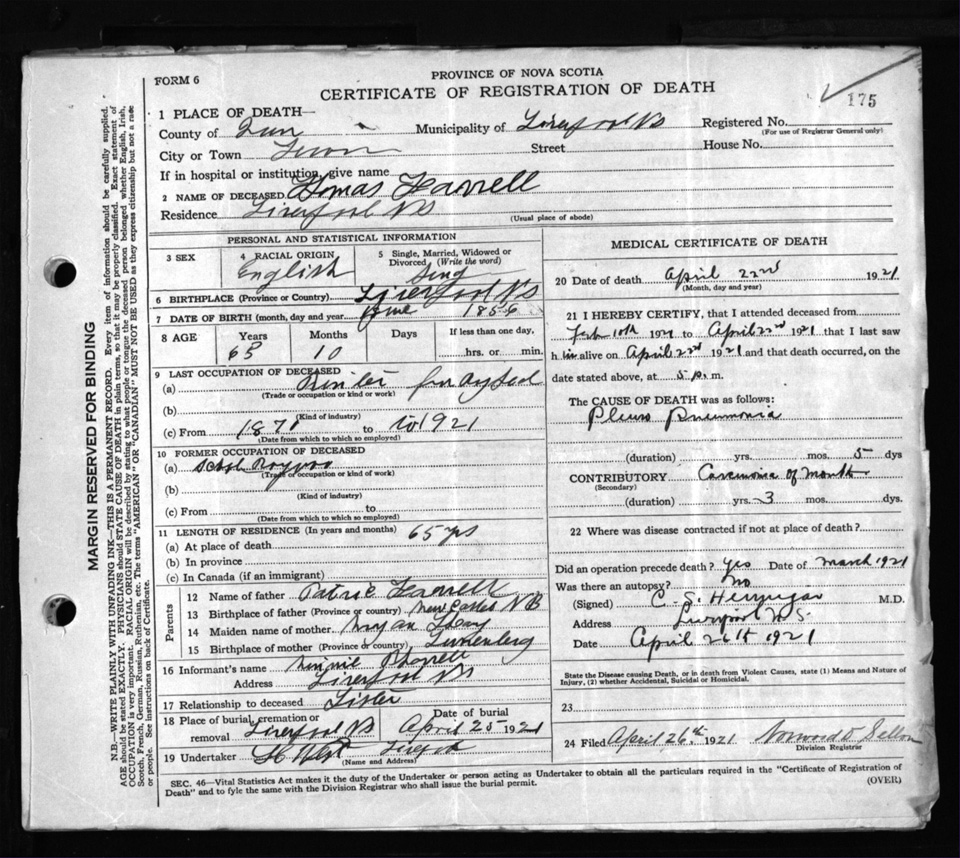 FORM 6
PROVINCE OF NOVA SCOTIA
CERTIFICATE OF REGISTRATION OF DEATH
175
1 PLACE OF DEATH—
County of Municipality of Liverpool NS Registered No.
(For use of Registrar General only)
City or Town Town Street House No.
If in hospital or institution, give name
2 NAME OF DECEASED Tomas Farrell
Residence Liverpool NS
(Usual place of abode)
PERSONAL AND STATISTICAL INFORMATION
3 SEX
4 RACIAL ORIGIN English
5 Single, Married, Widowed or Divorced (Write the word) Sing
6 BIRTHPLACE (Province or Country) Liverpool NS
7 DATE OF BIRTH (month, day and year) June 1856
8 AGE Years Months Days If less than one day,
65 10 hrs. or min.
9 LAST OCCUPATION OF DECEASED
(a)
(Trade or occupation or kind of work)
(b)
(Kind of industry)
(c) From 1871 to to 1921
(Date from which to which so employed)
10 FORMER OCCUPATION OF DECEASED
(a)
(Trade or occupation or kind of work)
(b)
(Kind of industry)
(c) From to
(Date from which to which so employed)
11 LENGTH OF RESIDENCE (In years and months) 65 yrs
(a) At place of death
(b) In province
(c) In Canada (if an immigrant)
Parents
12 Name of father Farrell
13 Birthplace of father (Province or country) NB
14 Maiden name of mother
15 Birthplace of mother (Province or country) Lunenberg
16 Informant's name
Address Liverpool NS
17 Relationship to deceased Sister
18 Place of burial, cremation or removal Liverpool NS Date of burial April 25 1921
19 Undertaker
(Name and Address)
MEDICAL CERTIFICATE OF DEATH
20 Date of death April 22nd 1921
(Month, day and year)
21 I HEREBY CERTIFY, that I attended deceased from
Feb 10th 1921 to April 22nd 1921 that I last saw
him alive on April 22nd 1921 and that death occurred, on the
date stated above, at 5 p. m.
The CAUSE OF DEATH was as follows:
Pleuro Pneumonia
(duration) yrs. mos. 5 dys
CONTRIBUTORY of Mouth
(Secondary)
(duration) yrs. 3 mos. dys.
22 Where was disease contracted if not at place of death?
Did an operation precede death? Yes Date of March 1921
Was there an autopsy? No
(Signed) C. S. Hennigar M.D.
Address Liverpool N.S.
Date April 26th 1921
State the Disease causing Death, or in death from Violent Causes, state (1) Means and Nature of
Injury, (2) whether Accidental, Suicidal or Homicidal.
23
24 Filed April 26th 1921
Division Registrar
SEC. 46—Vital Statistics Act makes it the duty of the Undertaker or person acting as Undertaker to obtain all the particulars required in the "Certificate of Registration of
Death" and to fyle the same with the Division Registrar who shall issue the burial permit.
(OVER)
MARGIN RESERVED FOR BINDING
N.B.—WRITE PLAINLY WITH UNFADING INK—THIS IS A PERMANENT RECORD. Every item of information should be carefully supplied.
AGE should be stated EXACTLY. PHYSICIANS should STATE CAUSE OF DEATH in plain terms, so that it may be properly classified. Exact statement of
OCCUPATION is very important. RACIAL ORIGIN will be described by stating to what people or tongue the deceased person belonged whether English, Irish,
Scotch, French, German, Russian, Ruthenian, etc. The terms "AMERICAN" OR "CANADIAN" MUST NOT BE USED as they express citizenship but not a race
or people. See instructions on back of Certificate.